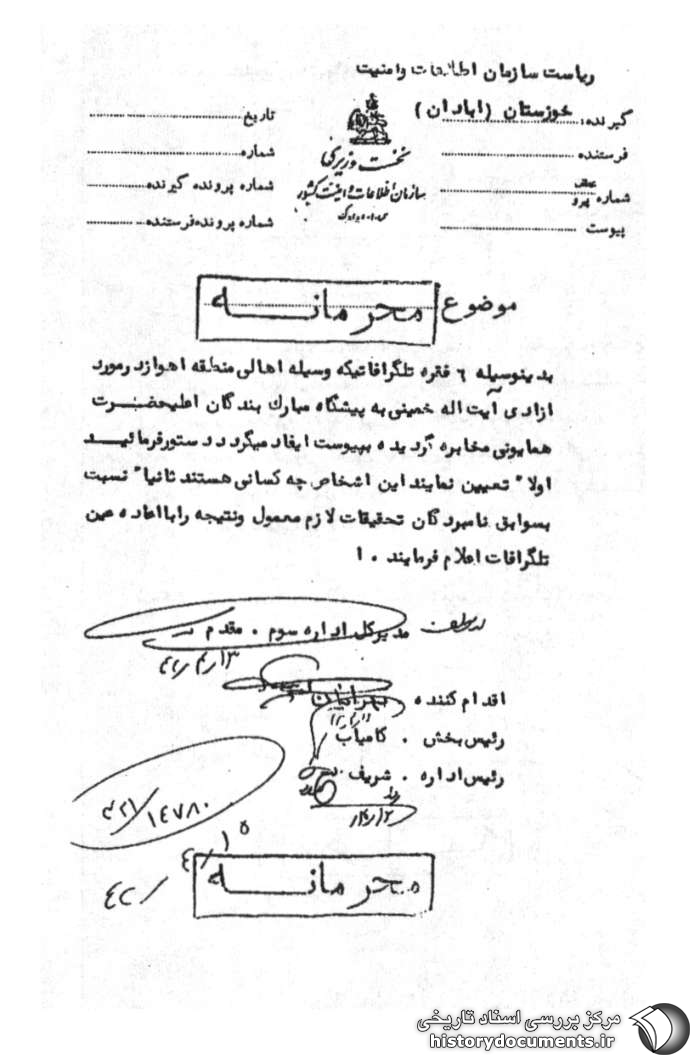 ریاست سازمان اطلاعات و امنیت
گیرنده: خوزستان (ابادان)
فرستنده
شماره
پیوست
نخست وزیری
سازمان اطلاعات و امنیت کشور
تاریخ
شماره
شماره پرونده گیرنده
شماره پرونده فرستنده
موضوع محرمانه
بدینوسیله ٦ فقره تلگرافاتیکه وسیله اهالی منطقه اهواز در مورد
ازادی آیت اله خمینی به پیشگاه مبارك بندگان اعلیحضرت
همایونی مخابره گردیده به پیوست ایفاد میگردد دستور فرمائید
اولا" تعیین نمایند این اشخاص چه کسانی هستند ثانیا" نسبت
بسوابق نامبردگان تحقیقات لازم معمول ونتیجه را با اعاده عین
تلگرافات اعلام فرمایند . ا
مدیرکل اداره سوم . مقدم
۴۲/۴/۱۳
اقدام کننده
رئیس بخش . کامیاب
رئیس اداره . شریف
۱۴۷۸۰
محرمانه
مرکز بررسی اسناد تاریخی
historydocuments.ir